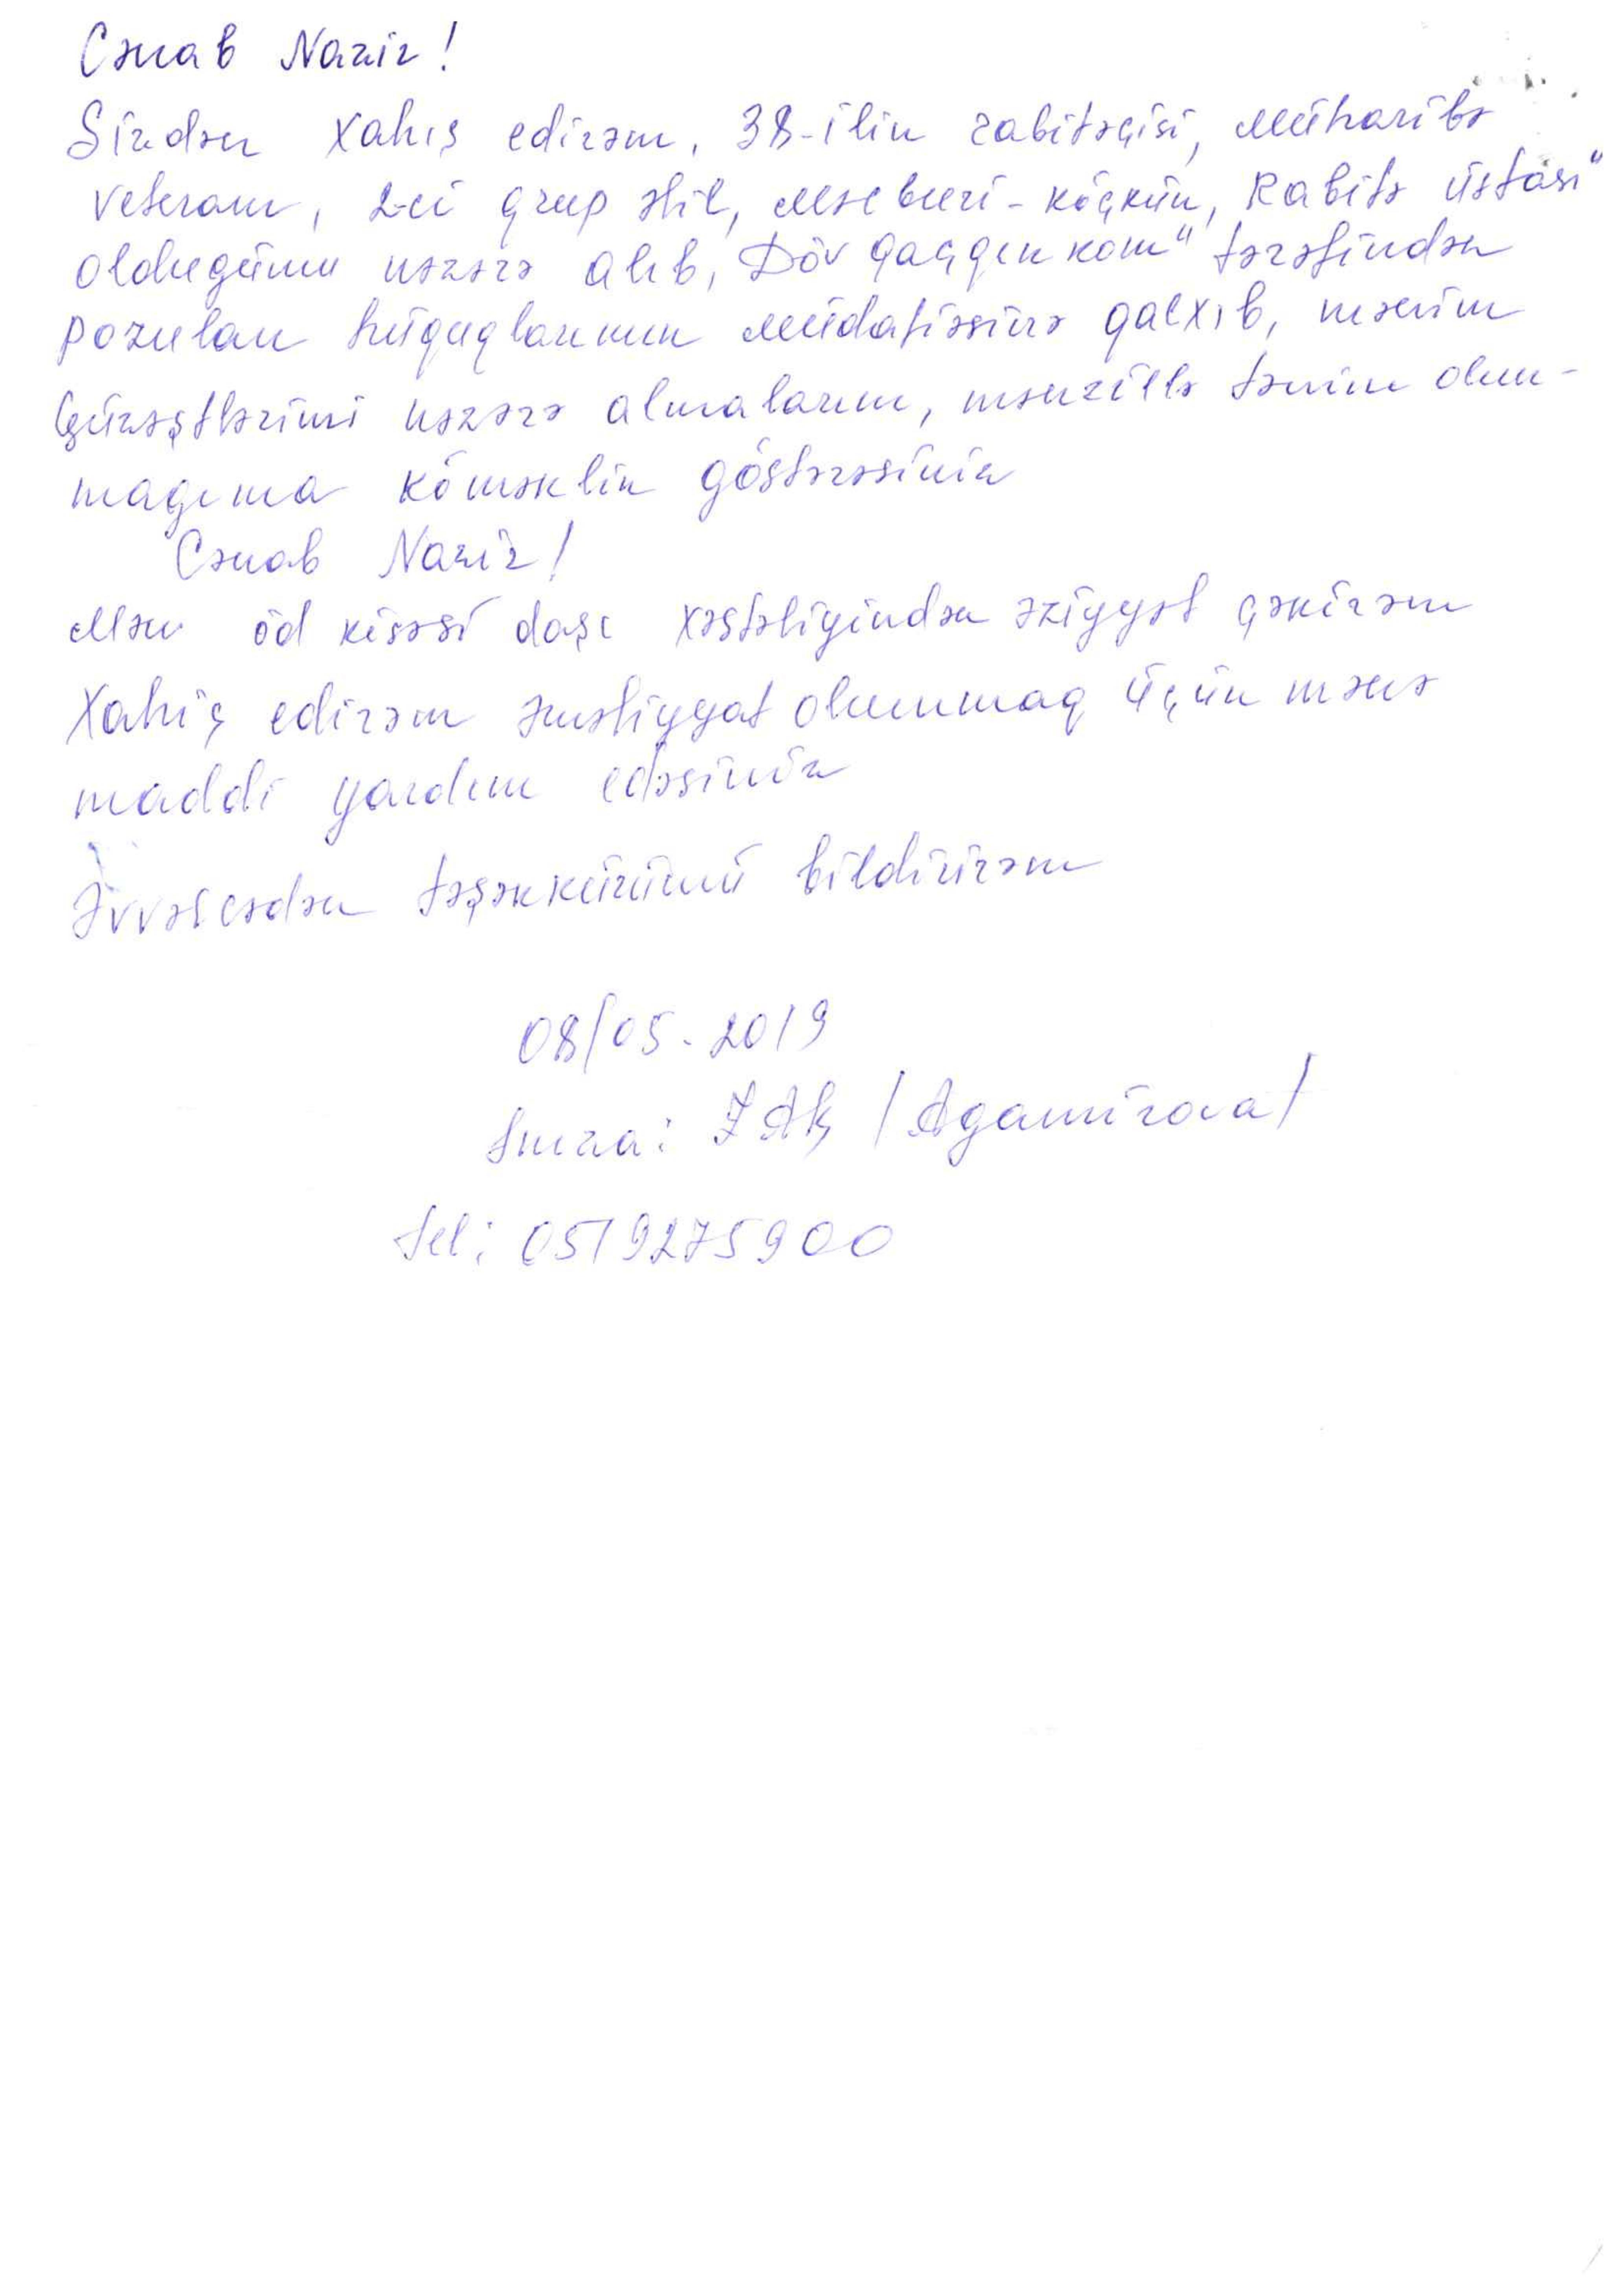 Cənab Nazir!
Sizdən xahış edirəm, 38-ilin rabitəçisi, Müharibə
veteranı, 2-ci qrup əlil, Məcburi-köçkün, Rabitə ustası"
olduğumu nəzərə alıb, Döv qaçqın kom" tərəfindən
pozulan hüquqlarımın Müdafiəsinə qalxıb, mənim
güzəştlərimi nəzərə almalarını, mənzillə təmin olun-
mağıma köməklik göstərəsiniz
Cənab Nazir!
Mən öd kisəsi daşı xəstəliyindən əziyyət çəkirəm
Xahiş edirəm əməliyyat olunmaq üçün mənə
maddi yardım edəsiniz
Əvvəlcədən təşəkkürümü bildirirəm
08/05-2019
İmza: /Agamirova/
tel: 0519275900